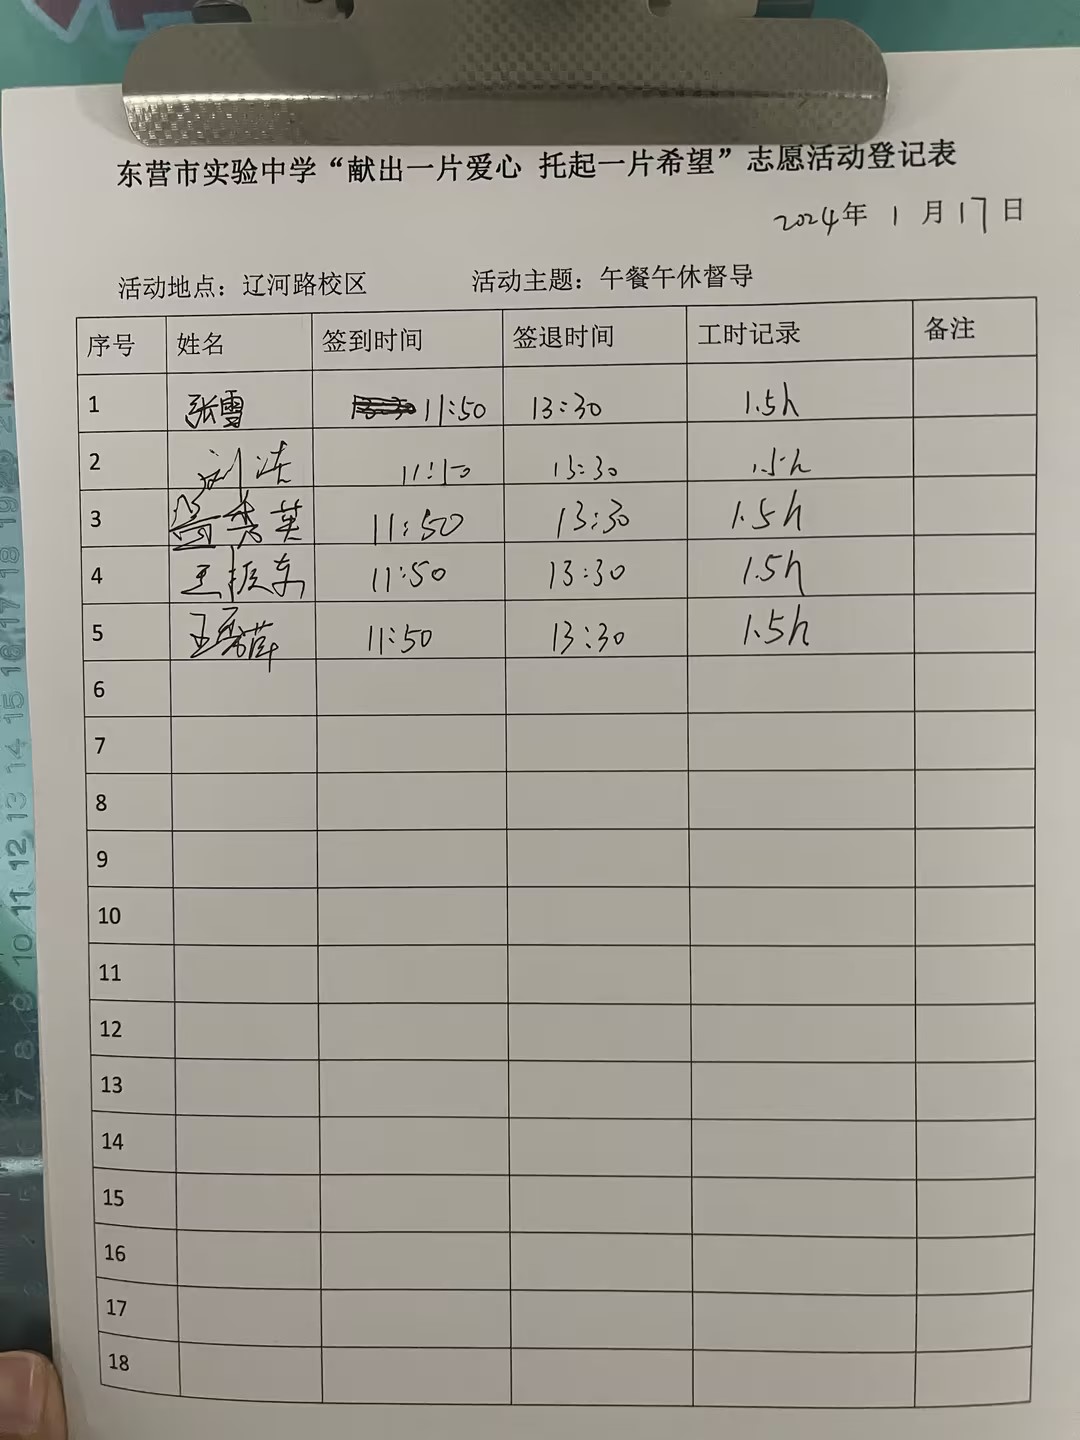 东营市实验中学“献出一片爱心 托起一片希望”志愿活动登记表
2024年 1 月17日
活动地点：辽河路校区 活动主题：午餐午休督导
序号 姓名 签到时间 签退时间 工时记录 备注
1 张雪 11:50 13:30 1.5h
2 刘 11:50 13:30 1.5h
3 秀英 11:50 13:30 1.5h
4 王振东 11:50 13:30 1.5h
5 王 11:50 13:30 1.5h
6
7
8
9
10
11
12
13
14
15
16
17
18